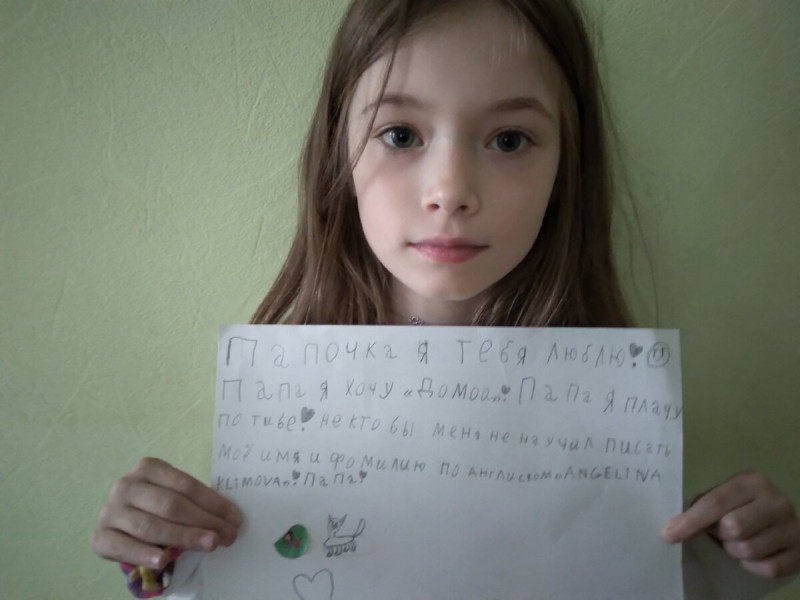 Папочка я тебя люблю!
Папа я хочу «Домоа»! Папа я плачу
по тибе! не кто бы меня не научил писать
моё имя и фомилию по англиском «ANGELINA
KLIMOVA»! Папа!